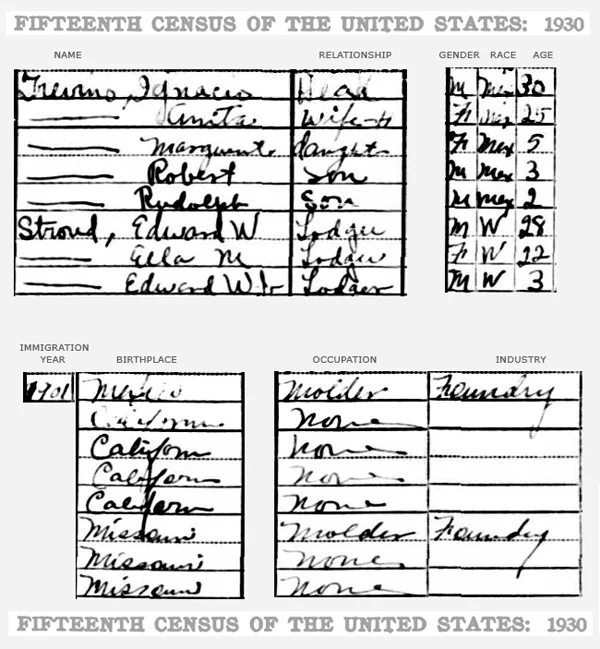 FIFTEENTH CENSUS OF THE UNITED STATES: 1930
NAME RELATIONSHIP GENDER RACE AGE
Trevino, Ignacio Head M Mex 30
Anita Wife-H F Mex 25
Marguerite daught F Mex 5
Robert Son M Mex 3
Rudolph Son M Mex 2
Stroud, Edward W Lodger M W 28
Ella M Lodger F W 22
Edward W Jr Lodger M W 3
IMMIGRATION
YEAR BIRTHPLACE OCCUPATION INDUSTRY
1901 Mexico Molder Foundry
California None
Californ None
California None
Californ None
Missouri Molder Foundry
Missouri None
Missouri None
FIFTEENTH CENSUS OF THE UNITED STATES: 1930